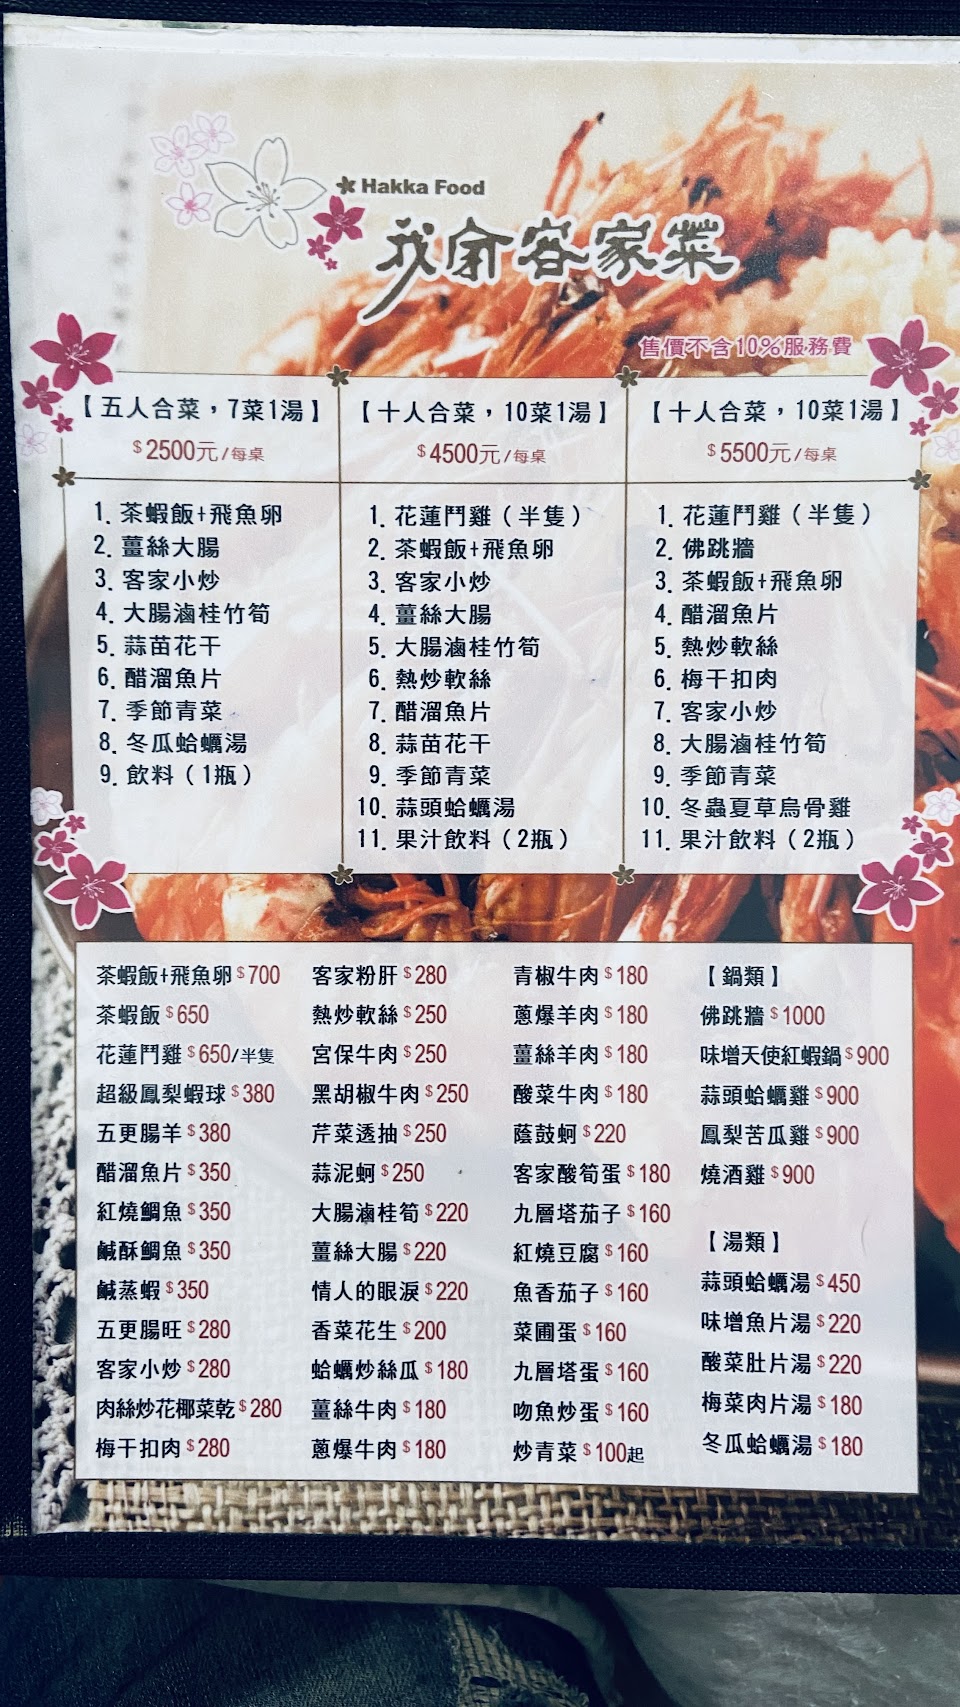 Hakka Food
戎宗客家菜
售價不含10%服務費
【五人合菜，7菜1湯】
$2500元/每桌
1. 茶蝦飯+飛魚卵
2. 薑絲大腸
3. 客家小炒
4. 大腸滷桂竹筍
5. 蒜苗花干
6. 醋溜魚片
7. 季節青菜
8. 冬瓜蛤蠣湯
9. 飲料（1瓶）
【十人合菜，10菜1湯】
$4500元/每桌
1. 花蓮鬥雞（半隻）
2. 茶蝦飯+飛魚卵
3. 客家小炒
4. 薑絲大腸
5. 大腸滷桂竹筍
6. 熱炒軟絲
7. 醋溜魚片
8. 蒜苗花干
9. 季節青菜
10. 蒜頭蛤蠣湯
11. 果汁飲料（2瓶）
【十人合菜，10菜1湯】
$5500元/每桌
1. 花蓮鬥雞（半隻）
2. 佛跳牆
3. 茶蝦飯+飛魚卵
4. 醋溜魚片
5. 熱炒軟絲
6. 梅干扣肉
7. 客家小炒
8. 大腸滷桂竹筍
9. 季節青菜
10. 冬蟲夏草烏骨雞
11. 果汁飲料（2瓶）
茶蝦飯+飛魚卵$700
茶蝦飯$650
花蓮鬥雞$650/半隻
超級鳳梨蝦球$380
五更腸羊$380
醋溜魚片$350
紅燒鯛魚$350
鹹酥鯛魚$350
鹹蒸蝦$350
五更腸旺$280
客家小炒$280
肉絲炒花椰菜乾$280
梅干扣肉$280
客家粉肝$280
熱炒軟絲$250
宮保牛肉$250
黑胡椒牛肉$250
芹菜透抽$250
蒜泥蚵$250
大腸滷桂筍$220
薑絲大腸$220
情人的眼淚$220
香菜花生$200
蛤蠣炒絲瓜$180
薑絲牛肉$180
蔥爆牛肉$180
青椒牛肉$180
蔥爆羊肉$180
薑絲羊肉$180
酸菜牛肉$180
蔭鼓蚵$220
客家酸筍蛋$180
九層塔茄子$160
紅燒豆腐$160
魚香茄子$160
菜圃蛋$160
九層塔蛋$160
吻魚炒蛋$160
炒青菜$100起
【鍋類】
佛跳牆$1000
味增天使紅蝦鍋$900
蒜頭蛤蠣雞$900
鳳梨苦瓜雞$900
燒酒雞$900
【湯類】
蒜頭蛤蠣湯$450
味增魚片湯$220
酸菜肚片湯$220
梅菜肉片湯$180
冬瓜蛤蠣湯$180